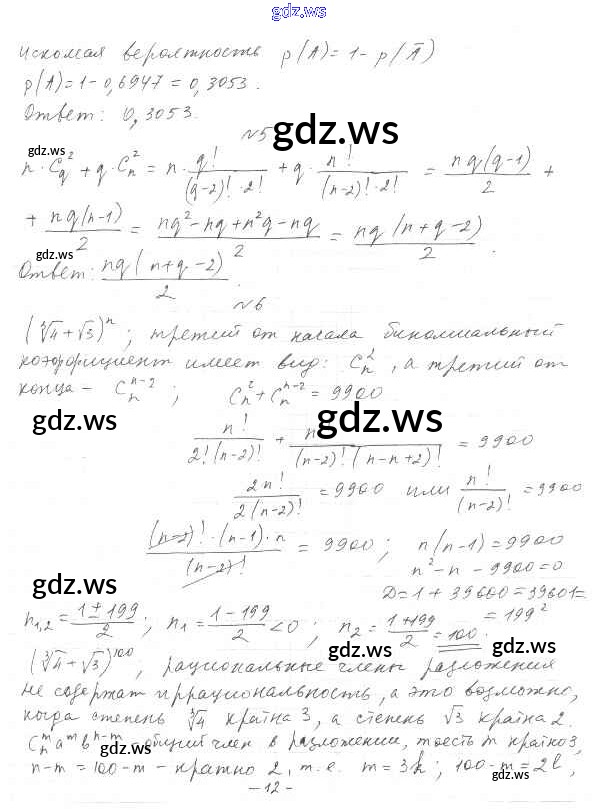 gdz.ws
Искомая вероятность p(A) = 1 - p(Ā)
p(A) = 1 - 0,6947 = 0,3053.
Ответ: 0,3053.
gdz.ws
№5
gdz.ws
n·C_q^2 + q·C_n^2 = n · q!/((q-2)!·2!) + q · n!/((n-2)!·2!) = nq(q-1)/2 +
+ nq(n-1)/2 = (nq²-nq+n²q-nq)/2 = nq(n+q-2)/2.
gdz.ws
gdz.ws
Ответ: nq(n+q-2)/2.
№6
(∛4+√3)^n; третий от начала биномиальный
коэффициент имеет вид: C_n^2, а третий от
конца - C_n^{n-2}; C_n^2 + C_n^{n-2} = 9900
gdz.ws
gdz.ws
n!/(2!(n-2)!) + n!/((n-2)!(n-n+2)!) = 9900
2n!/(2(n-2)!) = 9900 или n!/(n-2)! = 9900
(n-2)!·(n-1)·n/(n-2)! = 9900; n(n-1) = 9900
n²-n-9900=0
gdz.ws
D=1+39600=39601=
=199²
n_{1,2} = (1±199)/2; n_1 = (1-199)/2 <0; n_2 = (1+199)/2 = 100.
gdz.ws
gdz.ws
(∛4+√3)^{100}, рациональные члены разложения
не содержат иррациональность, а это возможно,
когда степень ∛4 кратна 3, а степень √3 кратна 2.
gdz.ws
C_n^m a^m b^{n-m} общий член в разложении, то есть m кратно 3,
gdz.ws
n-m = 100-m - кратно 2, т.е. m = 3k; 100-m = 2l,
- 12 -